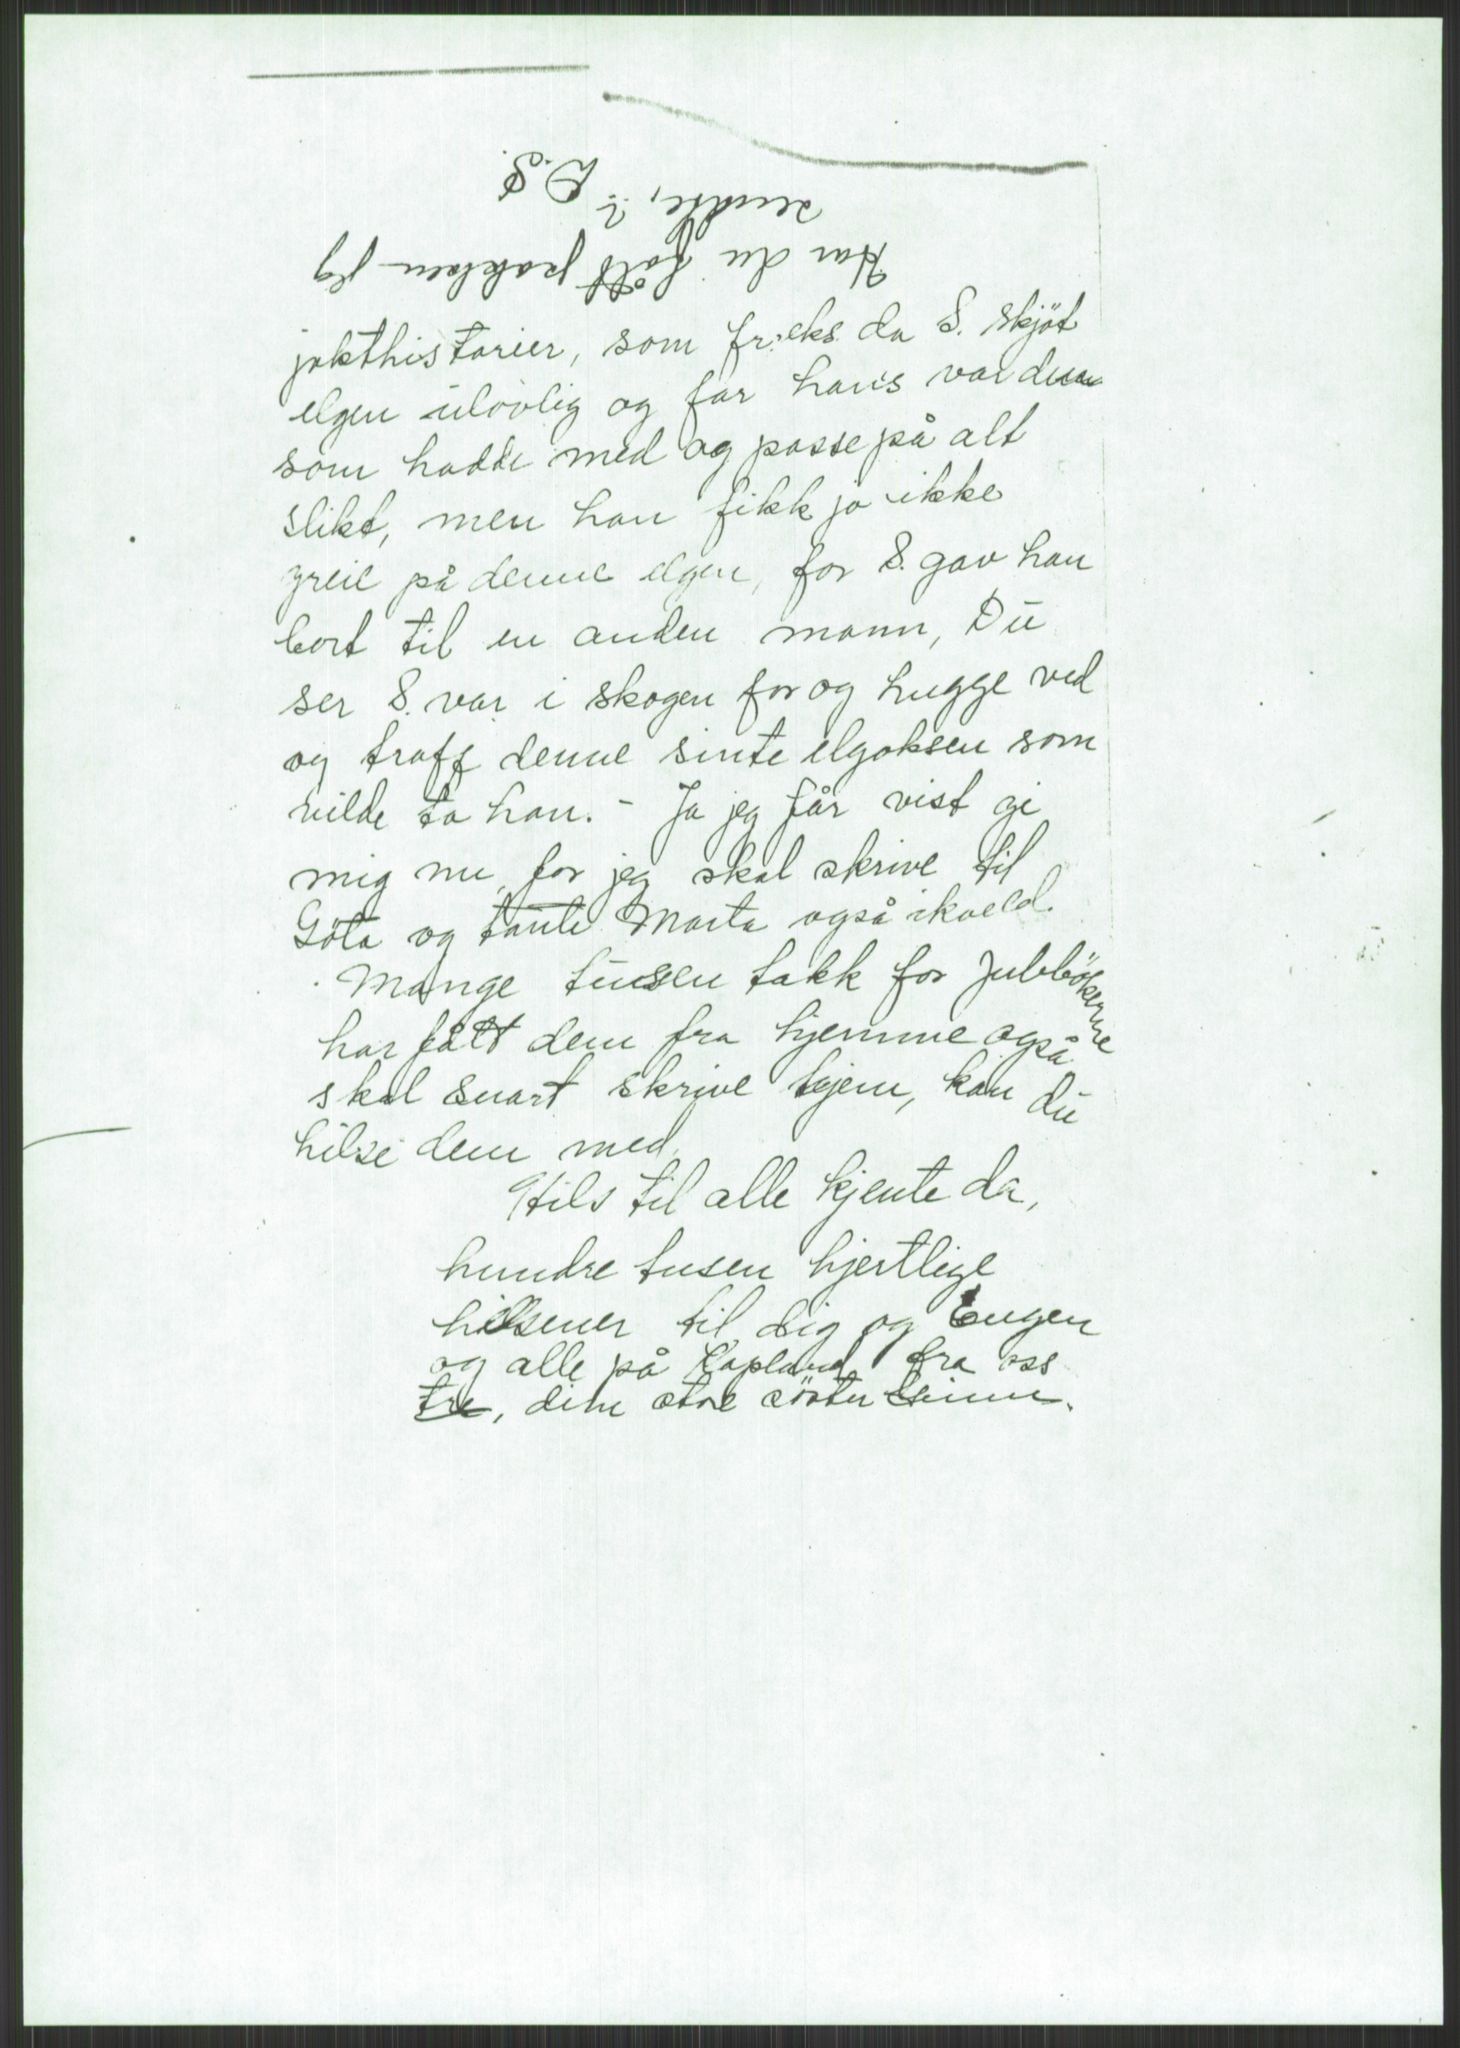 jakthistorier, som fr.eks. da S. skjöt
elgen ulovlig og far hans var den
som hadde med og passe på alt
slikt, men han fikk jo ikke
greie på denne elgen, for S. gav han
bort til en anden mann, Du
ser S. var i skogen for og hugge ved
og traff denne sinte elgoksen som
vilde ta han. - Ja jeg får vist gi
mig nu, for jeg skal skrive til
Göta og tante Marta også ikveld.
Mange tusen takk for Julebökerne
har fått dem fra hjemme også.
skal snart skrive hjem, kan du
hilse dem med.
Hils til alle kjente da,
hundre tusen hjertlige
hilsener til dig og Eugen
og alle på Kapland fra oss
tre, din store söster
P.S.
Har du fått pakken jeg
sendte, ?